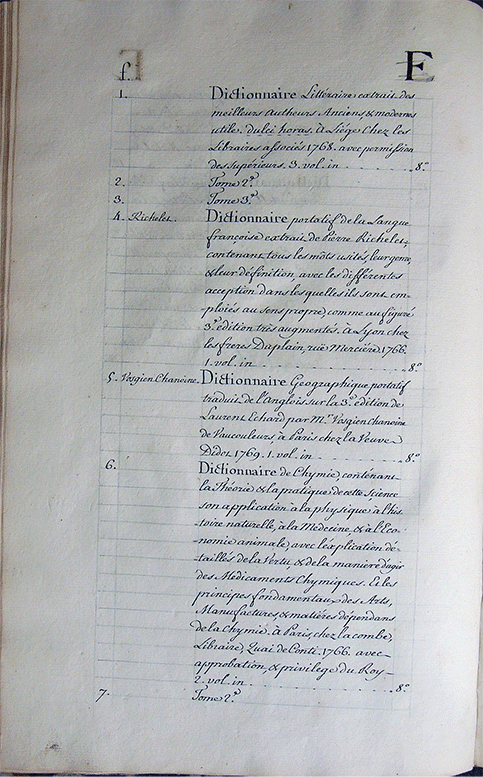 f. E
1. Dictionnaire Litteraire extrait des
meilleurs Autheurs Anciens, & modernes
utile dulci horas. à Liége Chez les
Libraires associés 1768. avec permission
des Superieurs. 3. vol. in 8.°
2. Tome 2.e
3. Tome 3.e
4. Richelet. Dictionnaire portatif de la Langue
françoise extrait de Pierre Richelet,
contenant tous les mots usités, leur genre,
& leur définition, avec les différentes
acception dans lesquelles ils sont em-
ploiés au sens propre, comme au figuré
3.e édition très augmentés. à Lyon chez
les freres Duplain, rüe Merciére 1766.
1. vol. in 8.°
5. Vosgien Chanoine. Dictionnaire Geographique portatif
traduit de l'Anglois sur la 3.e édition de
Laurent Echard par M.r Vosgien Chanoine
de Vaucouleurs à Paris chez la Veuve
Didot 1769. 1. vol. in 8.°
6. Dictionnaire de Chymie, contenant
la Théorie & la pratique de cette Science
son application a la physique à l'his-
toire naturelle, à la Medecine, & à l'Eco-
nomie animale, avec l'éxplication dé-
taillés de la Vertu, & de la maniere d'agir
des Médicaments Chymiques. Et les
principes fondamentaux des Arts,
Manufactures, & matiéres dépendans
de la Chymie. à Paris, chez la combe,
Libraire, Quai de Conti. 1766. avec
approbation, & privilege du Roy
2. vol. in 8.°
7. Tome 2.e